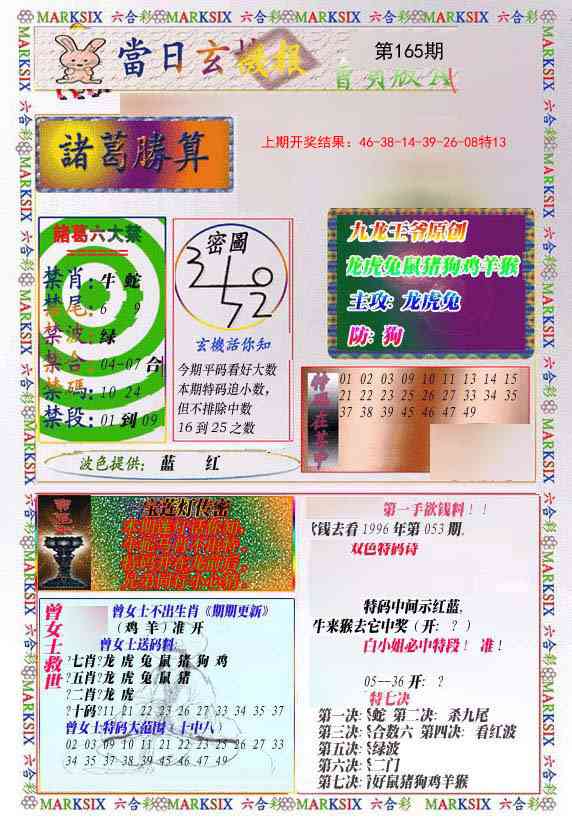 MARKSIX 六合彩 MARKSIX 六合彩 MARKSIX 六合彩 MARKSIX 六合彩
當日玄機报
第165期
諸葛勝算
上期开奖结果：46-38-14-39-26-08特13
諸葛六大禁
禁肖：牛 蛇
禁尾：6 9
禁波：绿
禁合：04-07合
禁碼：10 24
禁段：01到09
密圖
玄機活你知
今期平码看好大数
本期特码追小数，
但不排除中数
16到25之数
九龙王爷原创
龙虎兔鼠猪狗鸡羊猴
主攻：龙虎兔
防：狗
特碼在其中
01 02 03 09 10 11 13 14 15
21 22 23 25 26 27 33 34 35
37 38 39 45 46 47 49
波色提供： 蓝 红
宝莲灯传密
曾女士救世
曾女士不出生肖《期期更新》
（鸡 羊）准 开
曾女士送码料
?七肖?龙 虎 兔 鼠 猪 狗 鸡
?五肖?龙 虎 兔 鼠 猪
?二肖?龙 虎
?十码?11 21 22 23 26 27 33 34 35 37
曾女士特码大范围（十中八）
02 03 09 10 11 21 22 23 25 26 27 33
34 35 37 38 39 45 46 47 49
第一手欲钱料！！
欠钱去看1996年第053期,
双色特码诗
特码中间示红蓝,
牛来猴去它中奖（开：？）
白小姐必中特段！ 准！
05--36 开：？
特七决
第一决：杀蛇 第二决：杀九尾
第三决：杀合数六 第四决：看红波
第五决：杀绿波
第六决：杀二门
第七决：看好鼠猪狗鸡羊猴
MARKSIX 六合彩 MARKSIX 六合彩 MARKSIX 六合彩 MARKSIX 六合彩